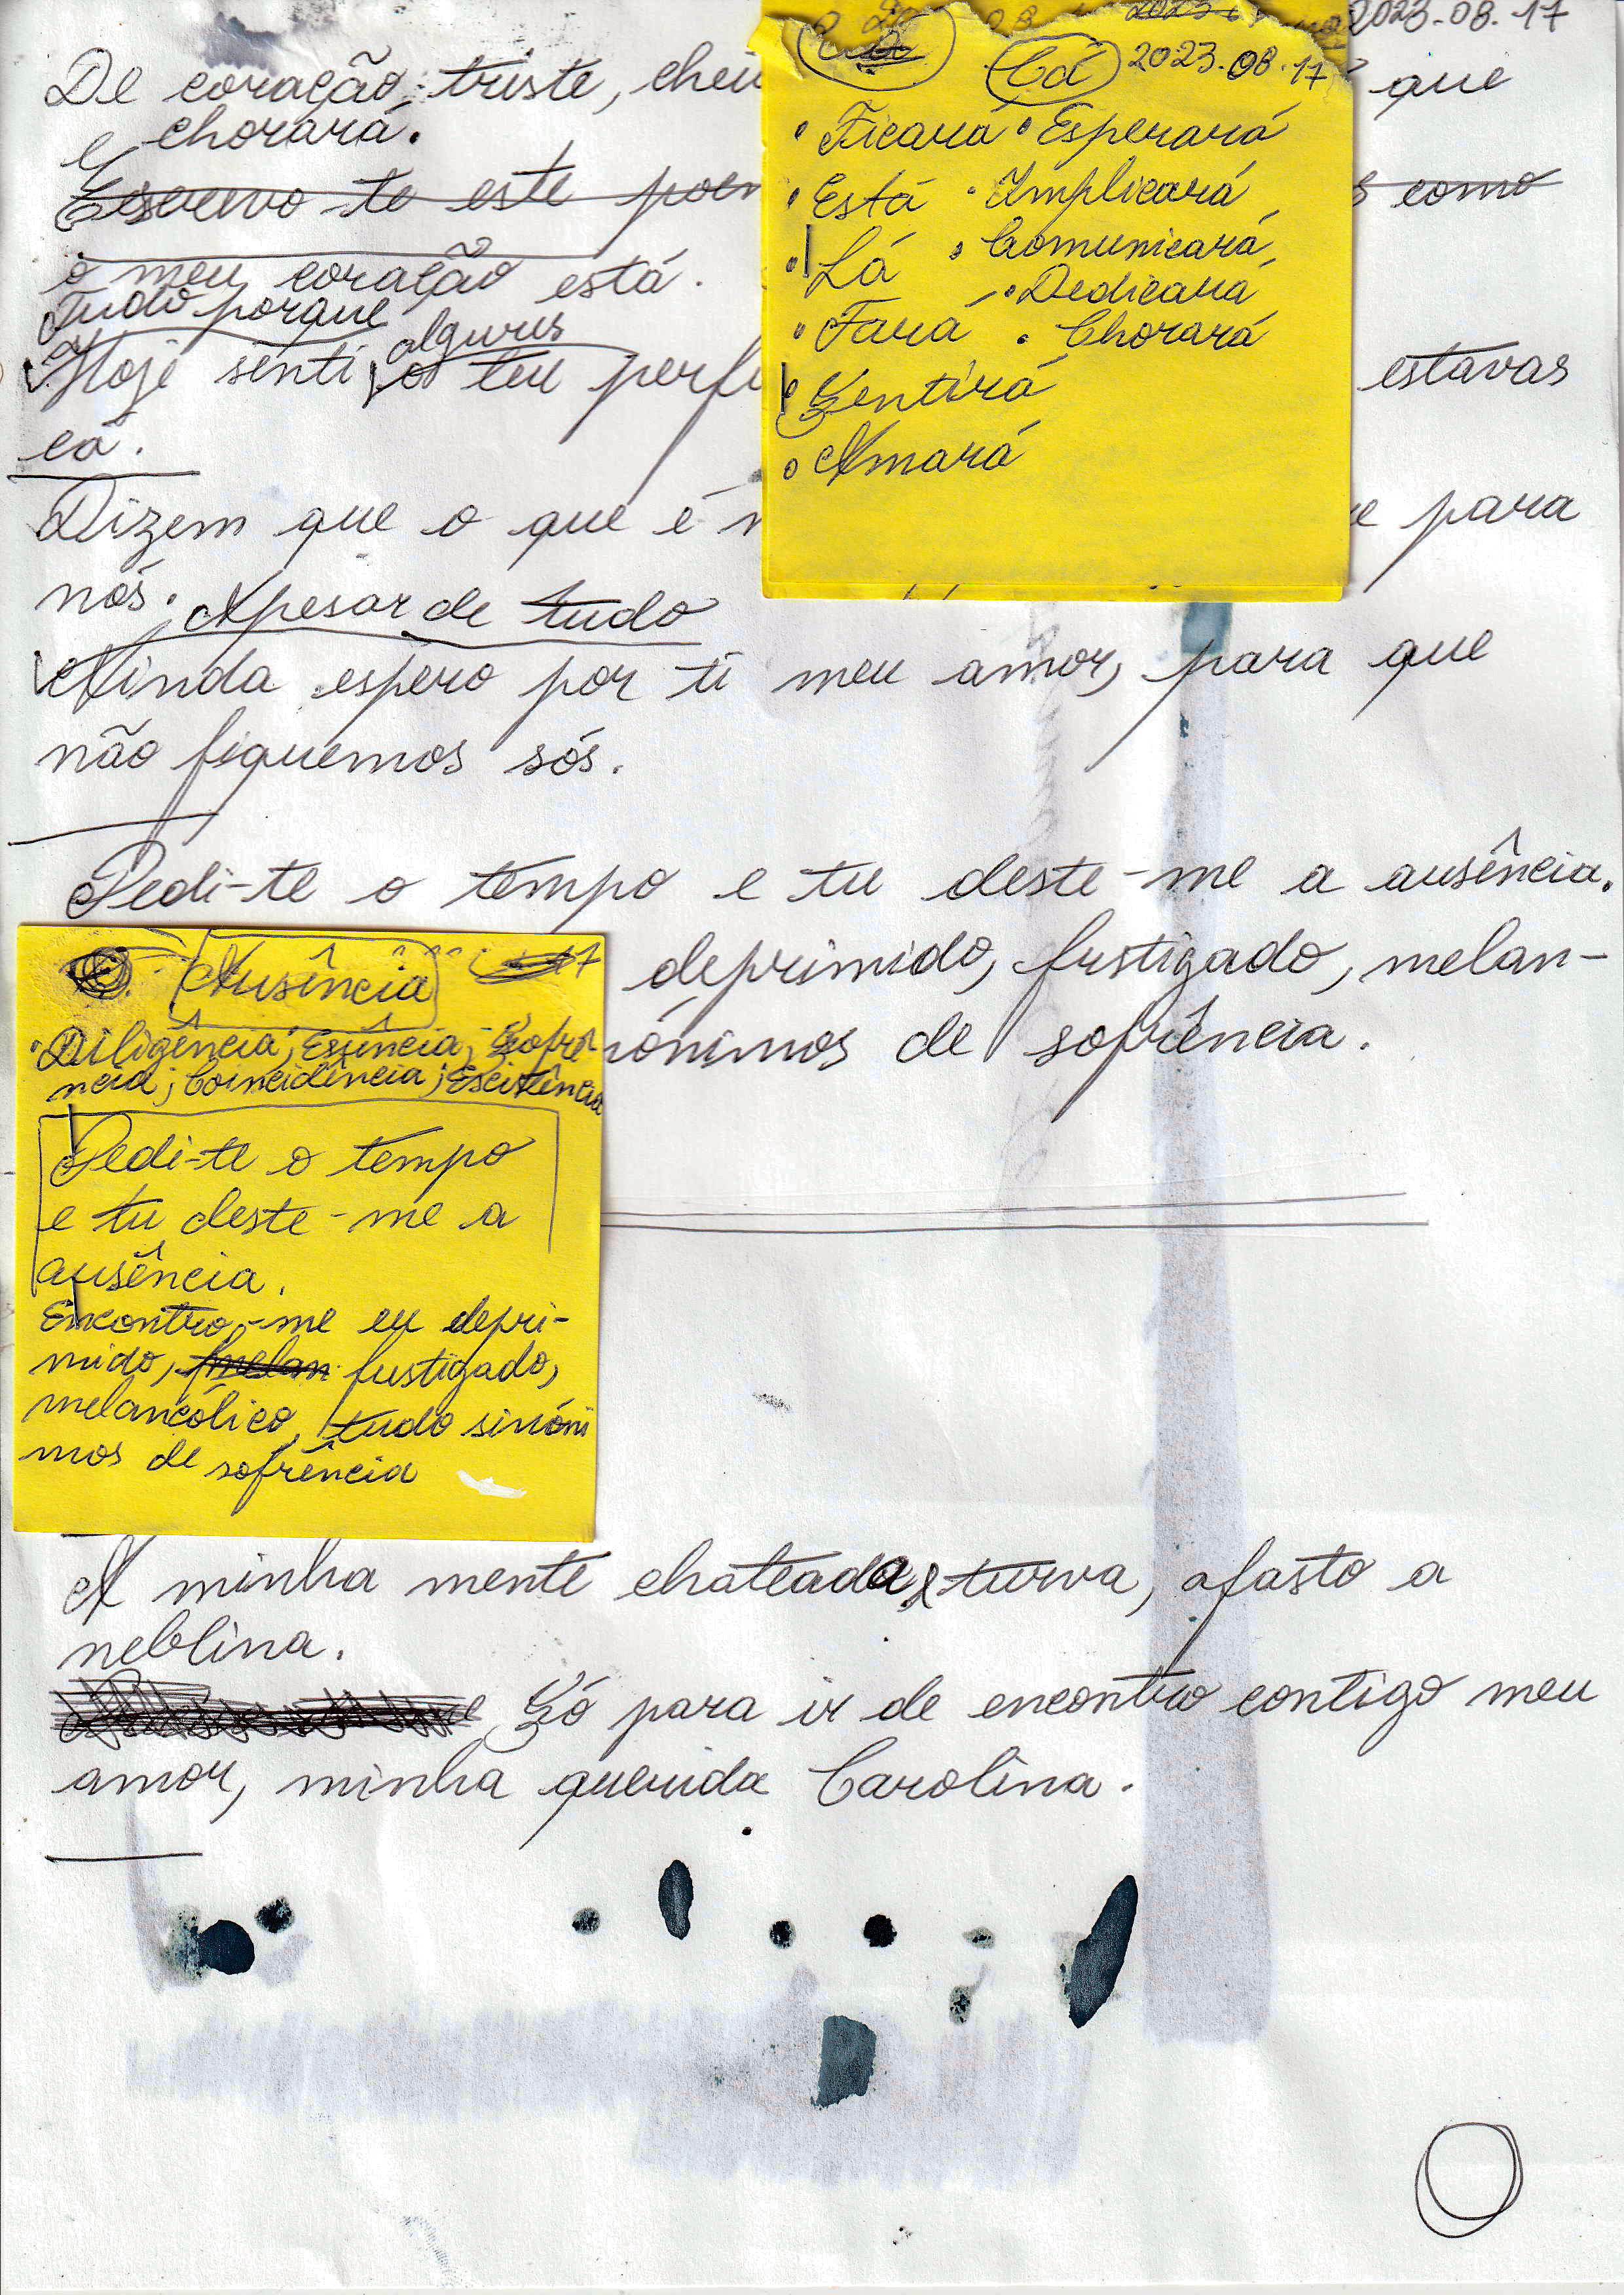 2023.08.17
De coração triste, cheio que
e chorará.
Escrevo-te este como
o meu coração está.
Tudo porque
Hoje senti algures o teu estavas
cá.
Dizem que o que é para
nós. Apesar de tudo
Ainda espero por ti meu amor, para que
não fiquemos sós.
Pedi-te o tempo e tu deste-me a ausência.
deprimido, fustigado, melan-
nónimos de sofrência.
A minha mente chateada e turva, afasto a
neblina.
Só para ir de encontro contigo meu
amor, minha querida Carolina.
Cá 2023.08.17
• Ficará • Esperará
• Está • Implicará
• Lá • Comunicará
• Dedicará
• Fará • Chorará
• Sentirá
• Amará
Ausência
• Diligência; Essência; Sofrê-
ncia; Coincidência; Existência
Pedi-te o tempo
e tu deste-me a
ausência.
Encontro-me eu depri-
mido, fustigado,
melancólico, tudo sinóni
mos de sofrência